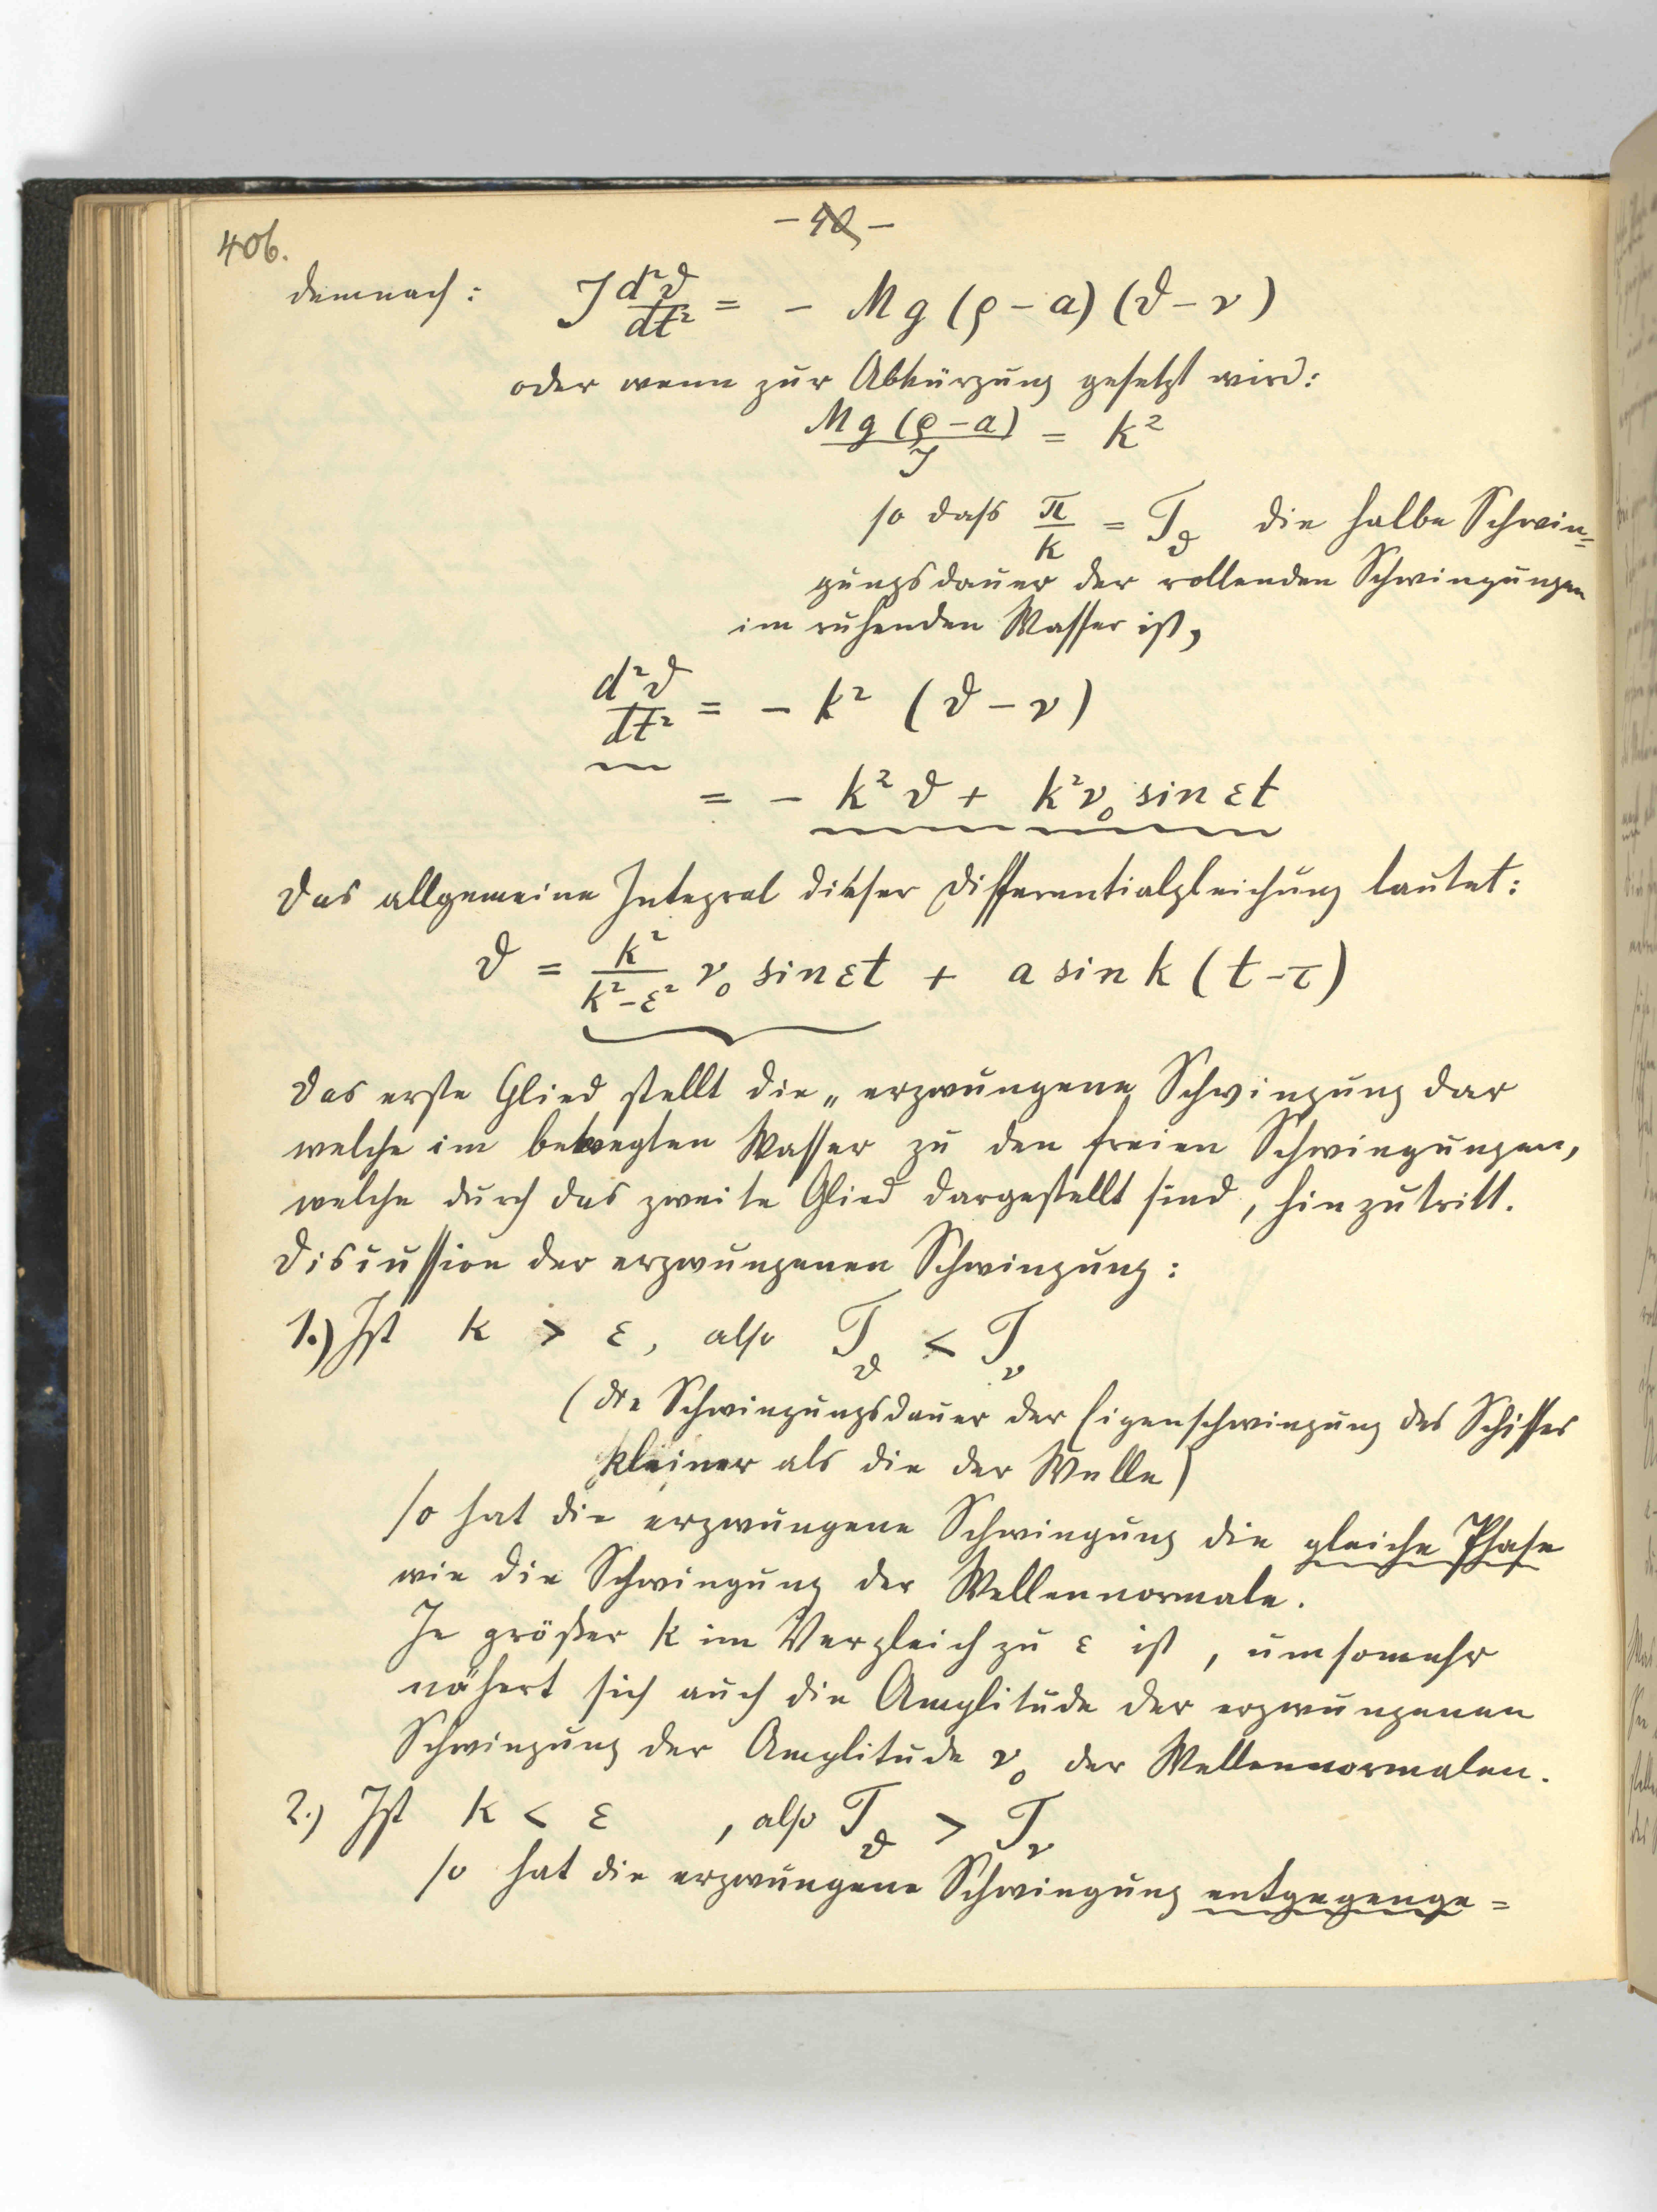 406.
- 40 -
demnach: J d²ϑ/dt² = - Mg (ρ - a) (ϑ - ν)
oder wenn zur Abkürzung gesetzt wird:
Mg (ρ - a)/J = k²
so dass π/k = T_ϑ die halbe Schwin=
gungsdauer der rollenden Schwingungen
im ruhenden Wasser ist,
d²ϑ/dt² = - k² (ϑ - ν)
= - k² ϑ + k² ν₀ sin εt
Das allgemeine Integral dieser Differentialgleichung lautet:
ϑ = k²/(k² - ε²) ν₀ sin εt + a sin k (t - τ)
Das erste Glied stellt die „ erzwungene Schwingung dar
welche im bewegten Wasser zu den freien Schwingungen,
welche durch das zweite Glied dargestellt sind, hinzutritt.
Discussion der erzwungenen Schwingung:
1.) Ist k > ε, also T_ϑ < T_ν
(die Schwingungsdauer der Eigenschwingung des Schiffes
kleiner als die der Welle)
so hat die erzwungene Schwingung die gleiche Phase
wie die Schwingung der Wellennormale.
Je größer k im Vergleich zu ε ist, umsomehr
nähert sich auch die Amplitude der erzwungenen
Schwingung der Amplitude ν₀ der Wellennormalen.
2.) Ist k < ε , also T_ϑ > T_ν
so hat die erzwungene Schwingung entgegenge=